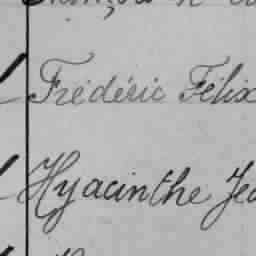 Frédéric Félix
Hyacinthe